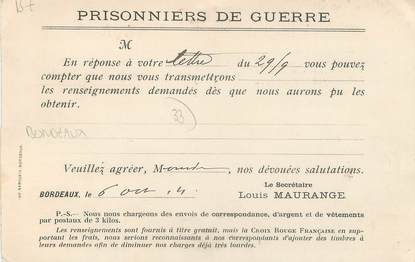 PRISONNIERS DE GUERRE
M
En réponse à votre lettre du 29/9 vous pouvez
compter que nous vous transmettrons
les renseignements demandés dès que nous aurons pu les
obtenir.
33
BORDEAUX
Veuillez agréer, M, nos dévouées salutations.
BORDEAUX, le 6 oct 14
Le Secrétaire
Louis MAURANGE.
P.-S.— Nous nous chargeons des envois de correspondance, d'argent et de vêtements
par postaux de 3 kilos.
Les renseignements sont fournis à titre gratuit, mais la CROIX ROUGE FRANÇAISE en sup-
portant les frais, nous serions reconnaissants à nos correspondants d'ajouter des timbres à
leurs demandes afin de diminuer nos charges déjà très lourdes.